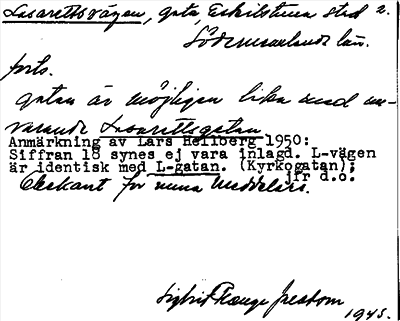 Lasarettsvägen, gata, Eskilstuna stad 2.
Södermanlands län.
forts.
gatan är möjligen lika med nu-
varande Lasarettsgatan
Anmärkning av Lars Hellberg 1950:
Siffran 18 synes ej vara inlagd. L-vägen
är identisk med L-gatan. (Kyrkogatan);
jfr d.o.
Obekant för mina meddelare.
Sigbrit Plænge Jacobson
1945.